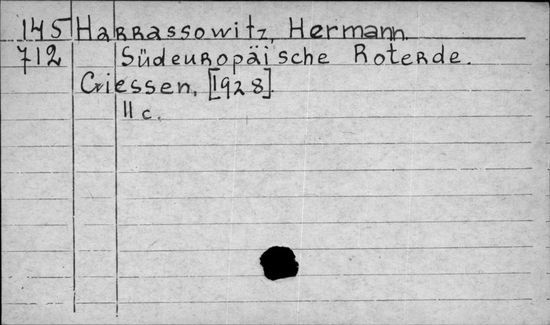 145 Harrassowitz, Hermann.
712 Südeuropäische Roterde.
Giessen, [1928].
11 c.